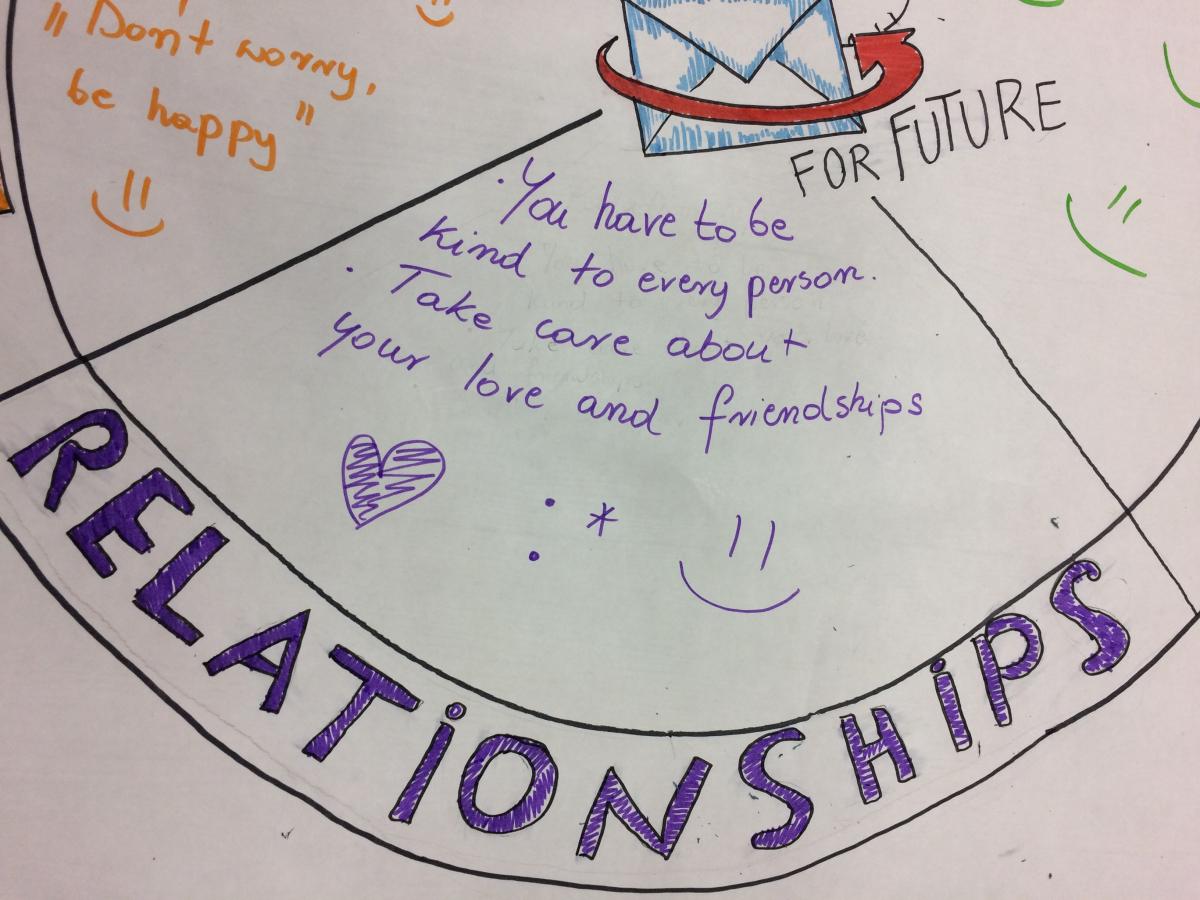 "Don't worry,
be happy"
FOR FUTURE
· You have to be
kind to every person.
· Take care about
your love and friendships
: *
RELATiONSHiPS